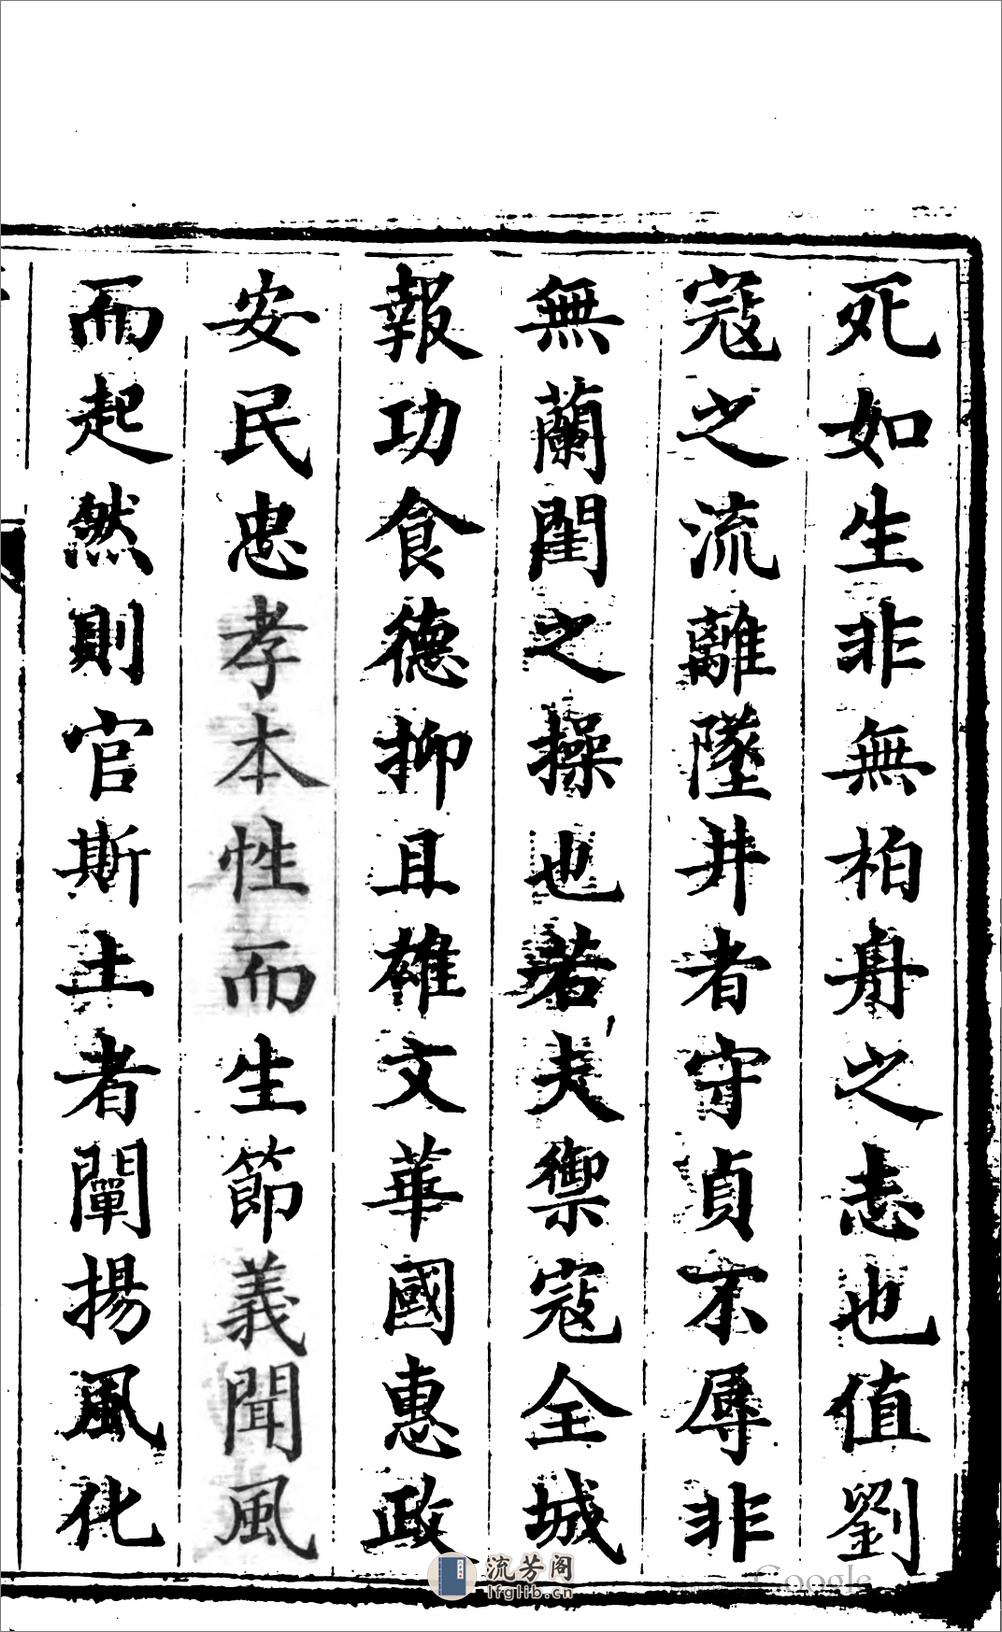 死如生非無柏舟之志也值劉
寇之流離墜井者守貞不辱非
無蘭閨之操也若夫禦寇全城
報功食德抑且雄文華國惠政
安民忠孝本性而生節義聞風
而起然則官斯土者闡揚風化
流芳阁
lfglib.cn
Google